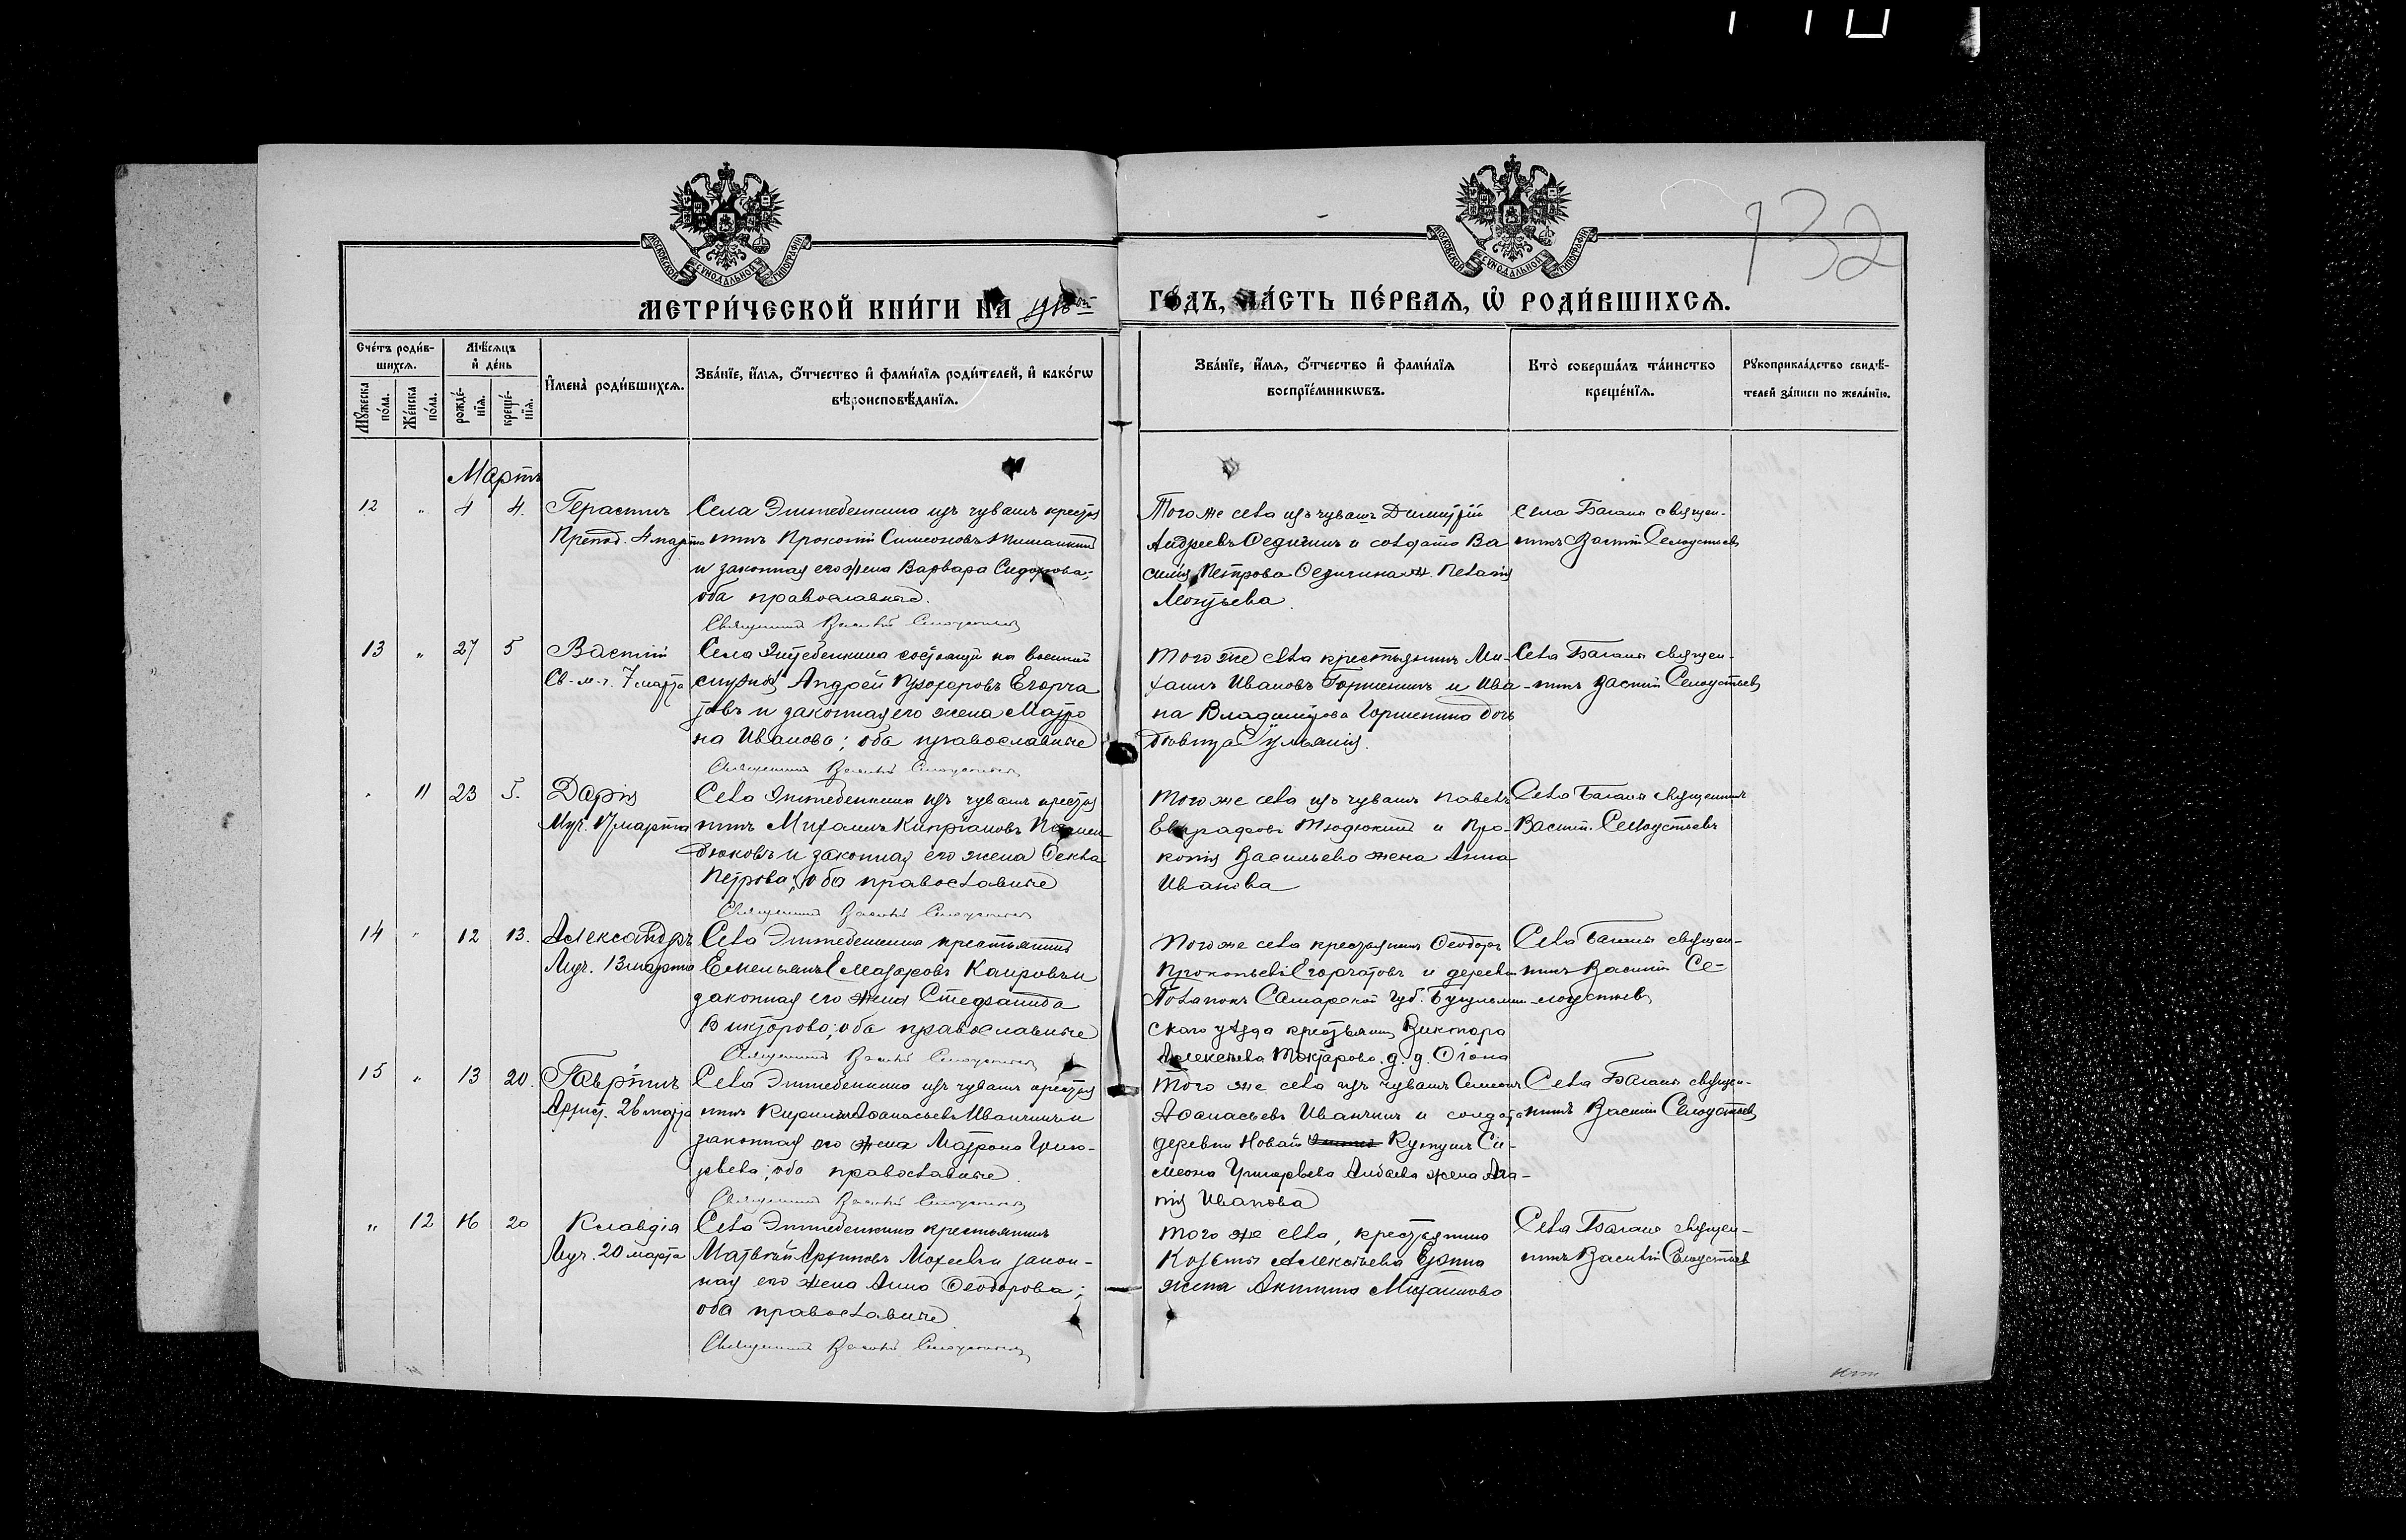 132
МОСКОВСКОЙ СѴНОДАЛЬНОЙ ТИПОГРАФІИ
МОСКОВСКОЙ СѴНОДАЛЬНОЙ ТИПОГРАФІИ
МЕТРИ́ЧЕСКОЙ КНИ́ГИ НА 1916 ой ГО́ДЪ, ЧА́СТЬ ПЕ́РВАЯ, Ѿ РОДИ́ВШИХСЯ.
Сче́тъ роди́в-
шихся.
Мѣ́сяцъ
и҆ де́нь
Мꙋ́жеска по́ла.
Же́нска по́ла.
рожде́-
нїя.
креще́-
нїя.
И҆мена̀ роди́вшихся.
Зва́нїе, и҆́мя, о҆́тчество и҆ фами́лїя роди́телей, и҆ како́гѡ
вѣроисповѣ́данїя.
Зва́нїе, и҆́мя, о҆́тчество и҆ фами́лїя
воспрїе́мникѡвъ.
Кто̀ соверша́лъ та́инство
креще́нїя.
Рꙋкоприкла́дство свидѣ́-
телей за́писи по жела́нїю.
Мартъ
12 „ 4 4.
Герасимъ
Препод. 4 марта
Села Эштебенкина изъ чувашъ крестья
нинъ Прокопій Симеоновъ
и законная его жена Варвара Сидорова;
оба православные.
Священникъ Василій Селоустьевъ
Того же села изъ чувашъ Димитрій
Андреевъ Седичинъ и солдата Ва
силія Петрова Седичина ж. Пелагія
Леонтьева.
Села Багана священ-
никъ Василій Селоустьевъ
13 „ 27 5
Василій
Св.-м-ч. 7 марта
Села Эштебенкина состоящій на военной
службѣ Андрей Прохоровъ Егорча
товъ и законная его жена Матро
на Иванова; оба православные
Священникъ Василій Селоустьевъ
Того же села крестьянинъ Ми-
хаилъ Ивановъ Горшенинъ и Ива
на Владимірова Горшенина дочь
дѣвица Іуліанія.
Села Багана священ-
никъ Василій Селоустьевъ
„ 11 23 5.
Дарія
Муч. 17 марта
Села Эштебенкина изъ чувашъ крестья
нинъ Михаилъ Кипріановъ
и законная его жена Ѳекла
Петрова; оба православные
Священникъ Василій Селоустьевъ
Того же села изъ чувашъ Павелъ
Евграфовъ Тюдюкинъ и Про-
копія Васильева жена Анна
Иванова
Села Багана священникъ
Василій Селоустьевъ
14 „ 12 13.
Александръ
Муч. 13 марта
Села Эштебенкина крестьянинъ
Емельянъ Назаровъ Каировъ и
законная его жена Стефанида
Викторова; оба православные
Священникъ Василій Селоустьевъ
Того же села крестьянинъ Ѳеодоръ
Прокопьевъ Егорчатовъ и деревни
Самарской губ. Бугульмин
скаго уѣзда крестьянина Виктора
Алексѣева Токтарова д. д.
Села Багана священ-
никъ Василій Се-
лоустьевъ
15 „ 13 20.
Гавріилъ
Архист. 26 марта
Села Эштебенкина изъ чувашъ крестья
нинъ Кириллъ Аѳанасьевъ Иванчинъ и
законная его жена Матрона Григо-
рьева; оба православные.
Священникъ Василій Селоустьевъ
Того же села изъ чувашъ Симеонъ
Аѳанасьевъ Иванчинъ и солдата
деревни Новой Кутуши Си-
меона Григорьева жена Ага-
пія Иванова
Села Багана священ-
никъ Василій Селоустьевъ
„ 12 16 20
Клавдія
Муч. 20 марта
Села Эштебенкина крестьянинъ
Матвѣй Архиповъ Мохеевъ и закон-
ная его жена Анна Ѳеодорова;
оба православные.
Священникъ Василій Селоустьевъ
Того же села, крестьянина
Козьмы Алексѣева
жена Акилина Михаилова
Села Багана священ-
никъ Василій Селоустьевъ